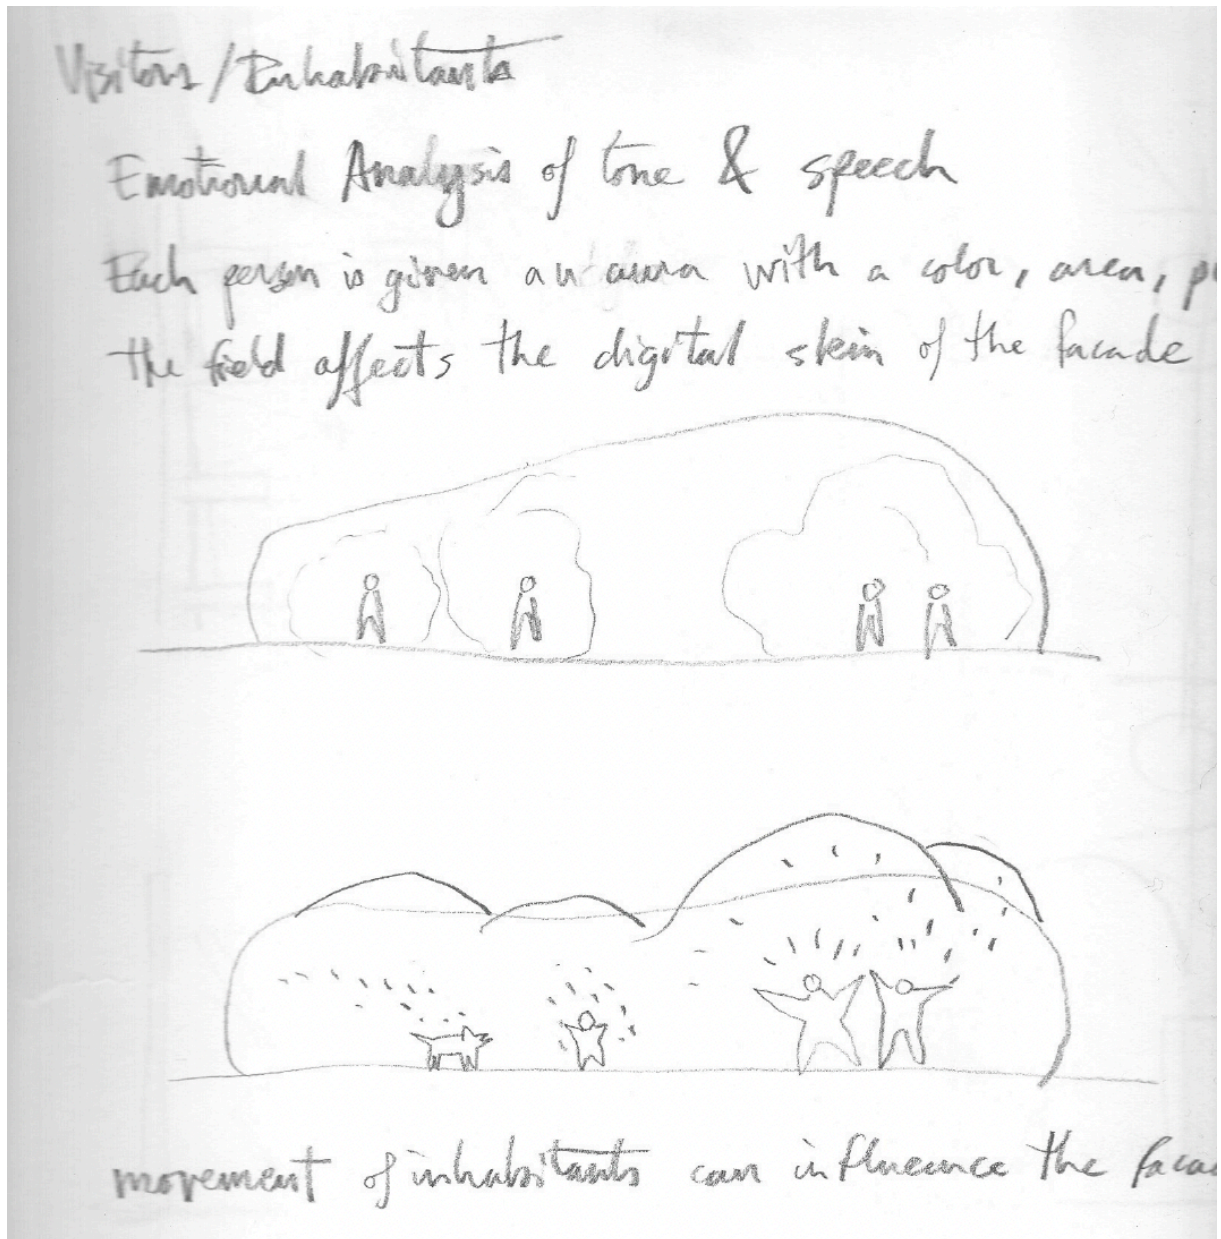 Visitors/Inhabitants
Emotional Analysis of tone & speech
Each person is given an aura with a color, area,
the field affects the digital skin of the facade
movement of inhabitants can influence the